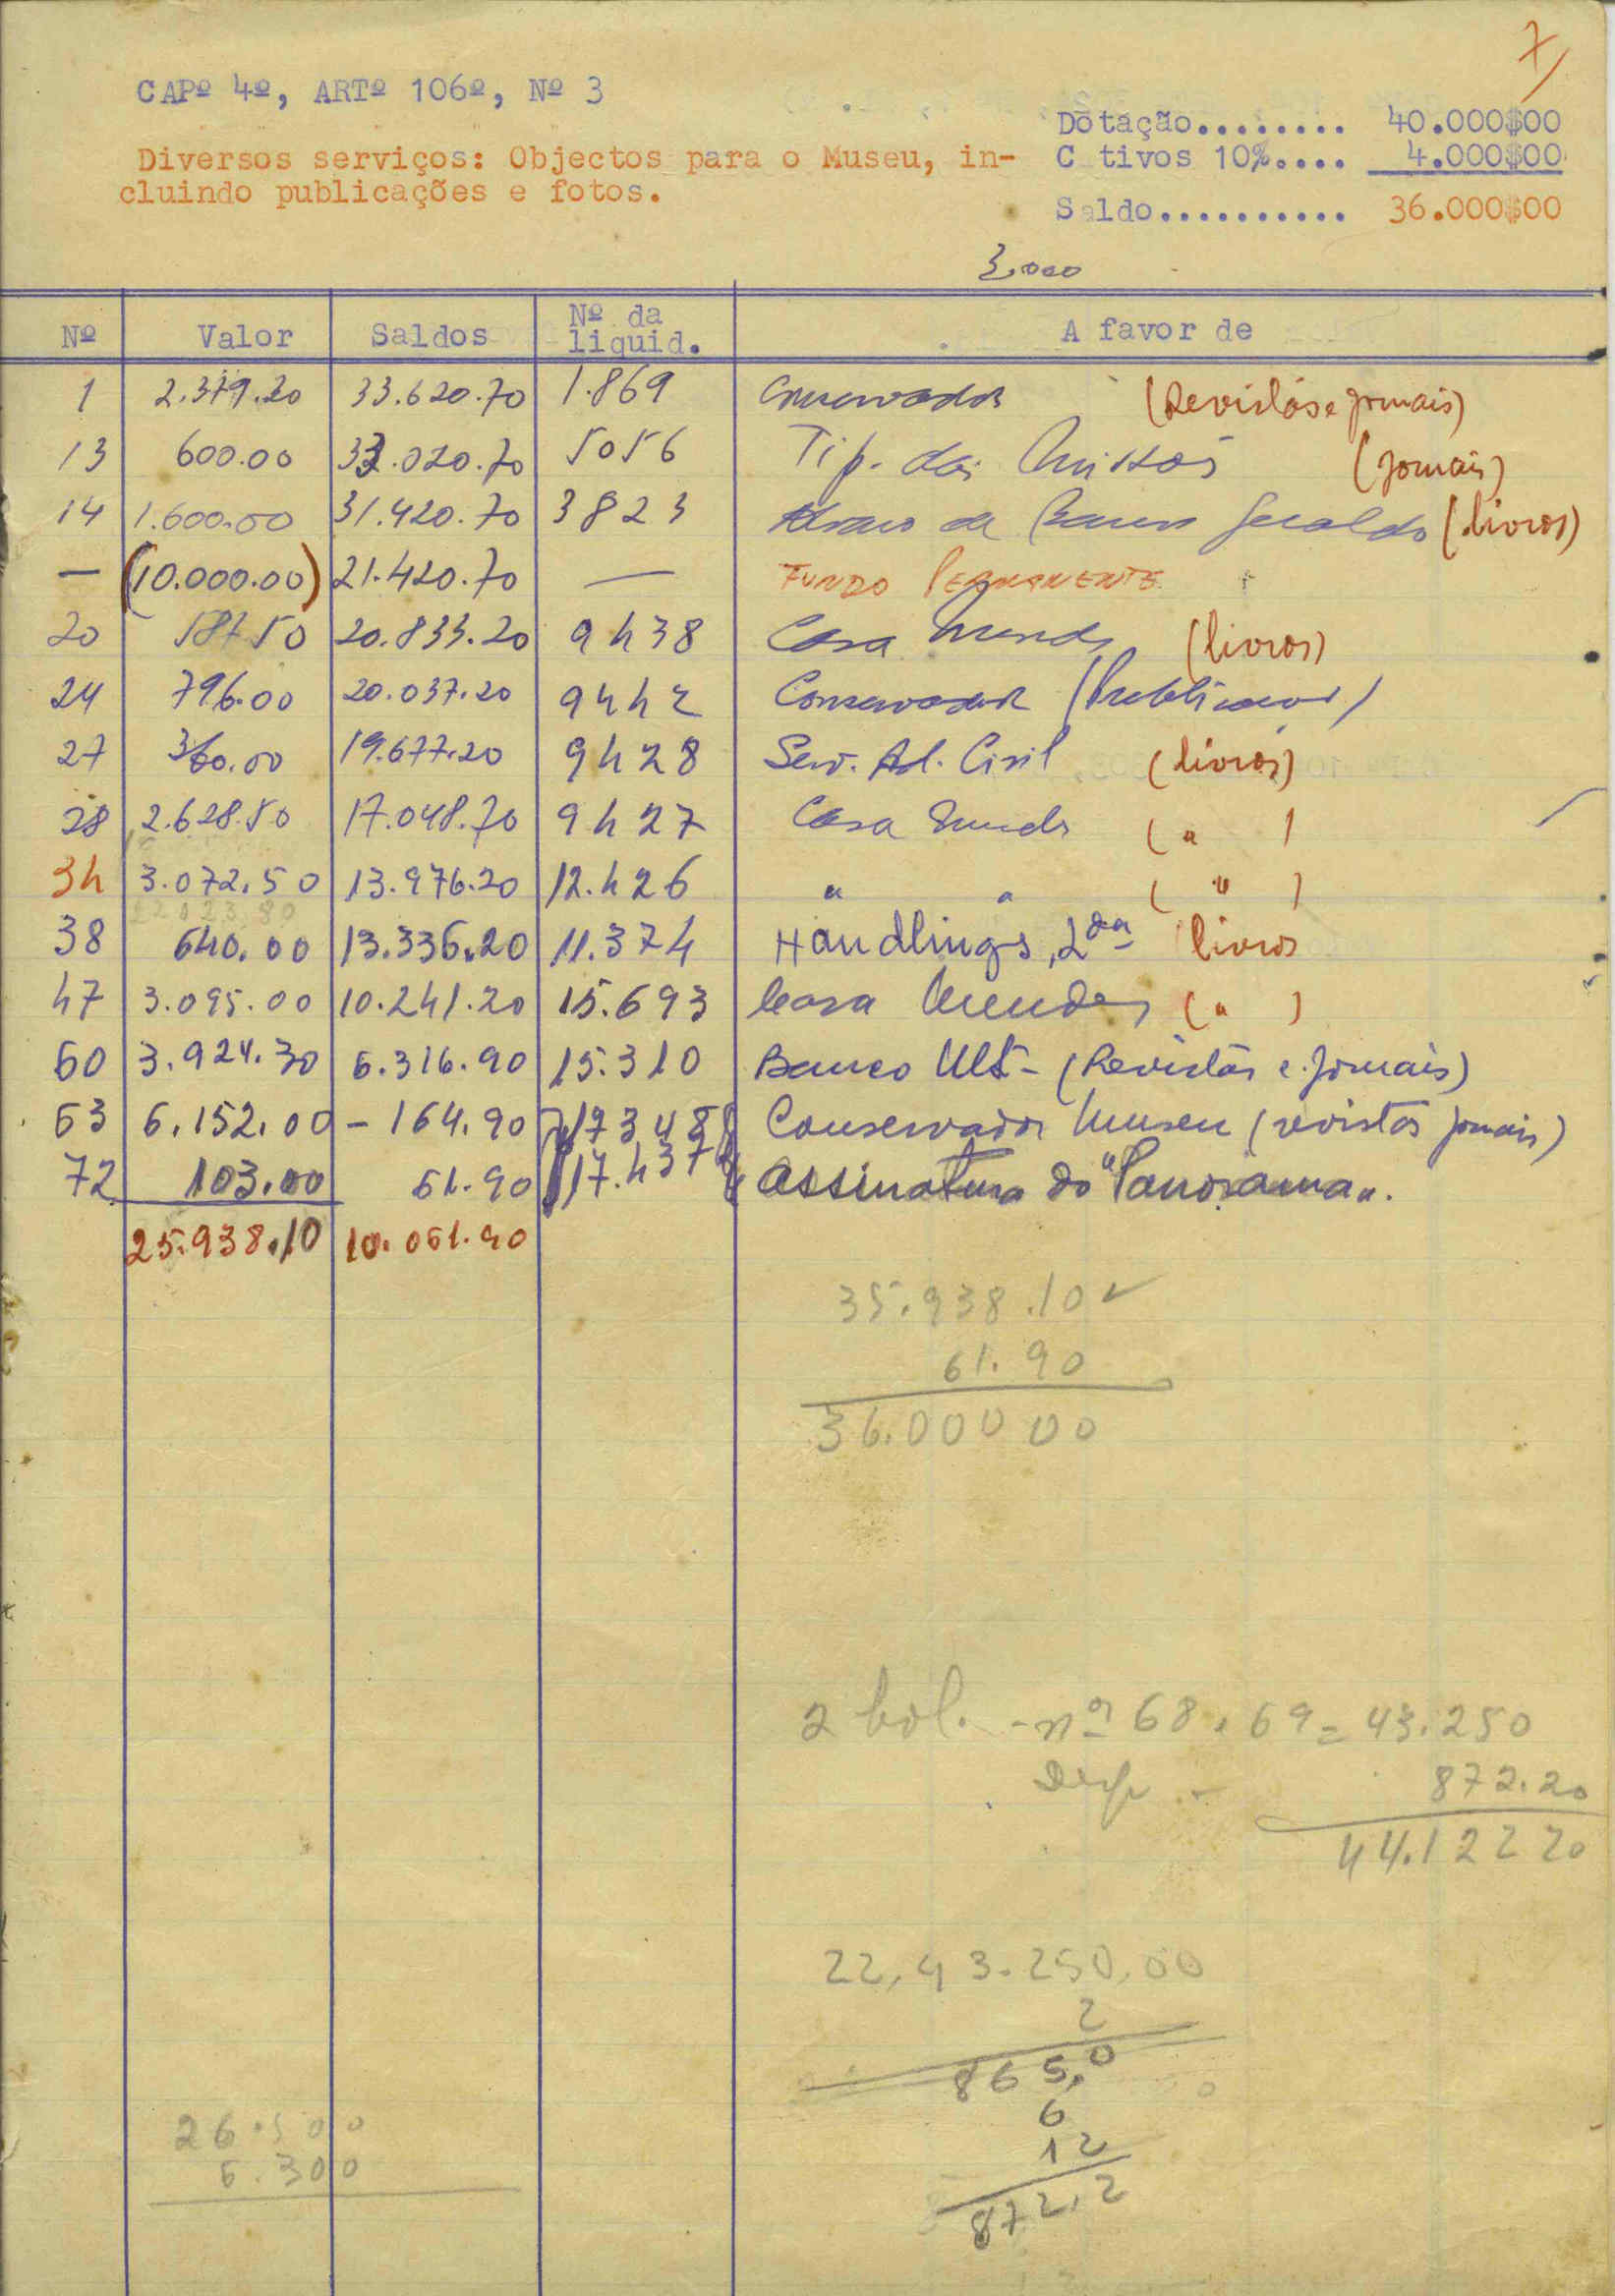 7
CAPº 4º, ARTº 106º, Nº 3
Dotação........ 40.000$00
Diversos serviços: Objectos para o Museu, in-
C tivos 10%.... 4.000$00
cluindo publicações e fotos.
Saldo.......... 36.000$00
3.000
Nº Valor Saldos Nº da liquid. A favor de
1 2.379.30 33.620.70 1.869 Conservador (Revistas e Jornais)
13 600.00 33.020.70 5056 Tip. das Missões (Jornais)
14 1.600.00 31.420.70 3823 de Geraldo (livros)
— (10.000.00) 21.420.70 — FUNDO PERMANENTE
20 587.50 20.833.20 9438 Casa (livros)
24 796.00 20.037.20 9442 Conservador
27 360.00 19.677.20 9428 Serv. Ad. Civil (livros)
28 2.628.50 17.048.70 9427 Casa ( " )
34 3.072.50 13.976.20 12.426 " " ( " )
38 640.00 13.336.20 11.374 Handlings, Lda livros
47 3.095.00 10.241.20 15.693 Casa Mendes ( " )
60 3.924.30 6.316.90 15.310 Banco Ult- (Revistas e Jornais)
63 6.152.00 - 164.90 17348 Conservador Museu (revistas jornais)
72 103.00 61.90 17.437 Assinatura do "Panorama".
25.938.10 10.061.90
35.938.10
61.90
36.000 00
2 bol. - nº 68 e 69 = 43.250
Desp - 872.20
44.122 20
22,43.250,00
2
865,0
6
12
872,2
26.500
6.300